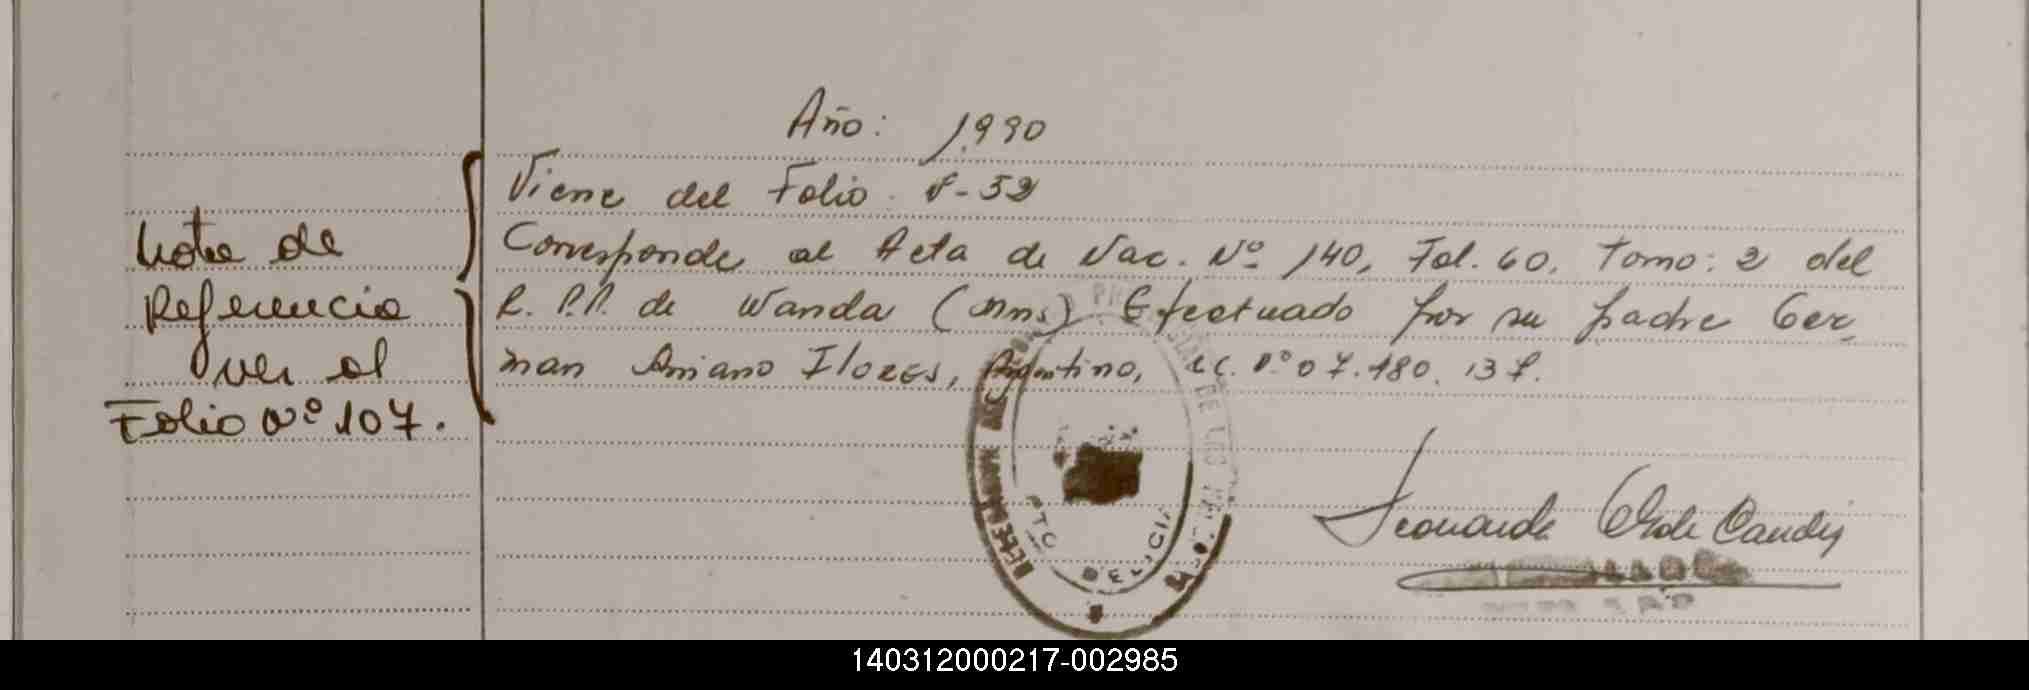 Año: 1.990
Viene del Folio Nº 52
Corresponde al Acta de Nac. Nº 140, Fol. 60, Tomo: 2 del
R. P.P. de Wanda (Mns) Efectuado por su padre Ger
man Aniano Flores, Argentino, L.C. Nº 07.180.137.
Nota de
Referencia
ver al
Folio Nº 107.
PTO DELICIA
140312000217-002985